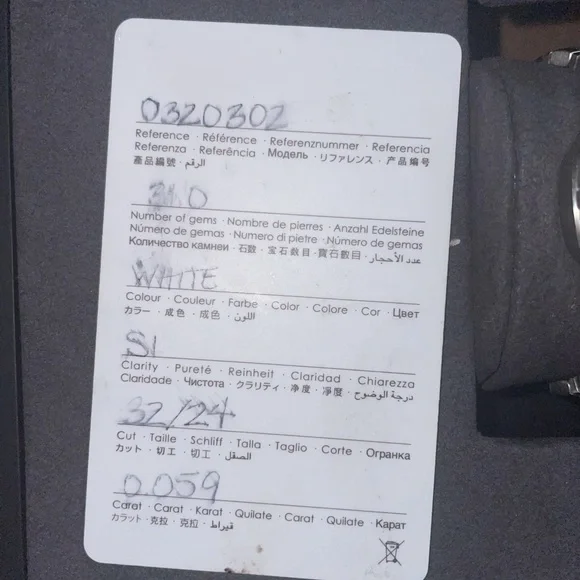 0320302
Reference · Référence · Referenznummer · Referencia
Referenza · Referência · Модель · リファレンス · 产品编号
產品編號 · الرقم
Number of gems · Nombre de pierres · Anzahl Edelsteine
Número de gemas · Numero di pietre · Número de gemas
Количество камней · 石数 · 宝石数目 · 寶石數目 · عدد الأحجار
WHITE
Colour · Couleur · Farbe · Color · Colore · Cor · Цвет
カラー · 成色 · 成色 · اللون
SI
Clarity · Pureté · Reinheit · Claridad · Chiarezza
Claridade · Чистота · クラリティ · 净度 · 凈度 · درجة الوضوح
32/24
Cut · Taille · Schliff · Talla · Taglio · Corte · Огранка
カット · 切工 · 切工 · الصقل
0.059
Carat · Carat · Karat · Quilate · Carat · Quilate · Карат
カラット · 克拉 · 克拉 · قيراط